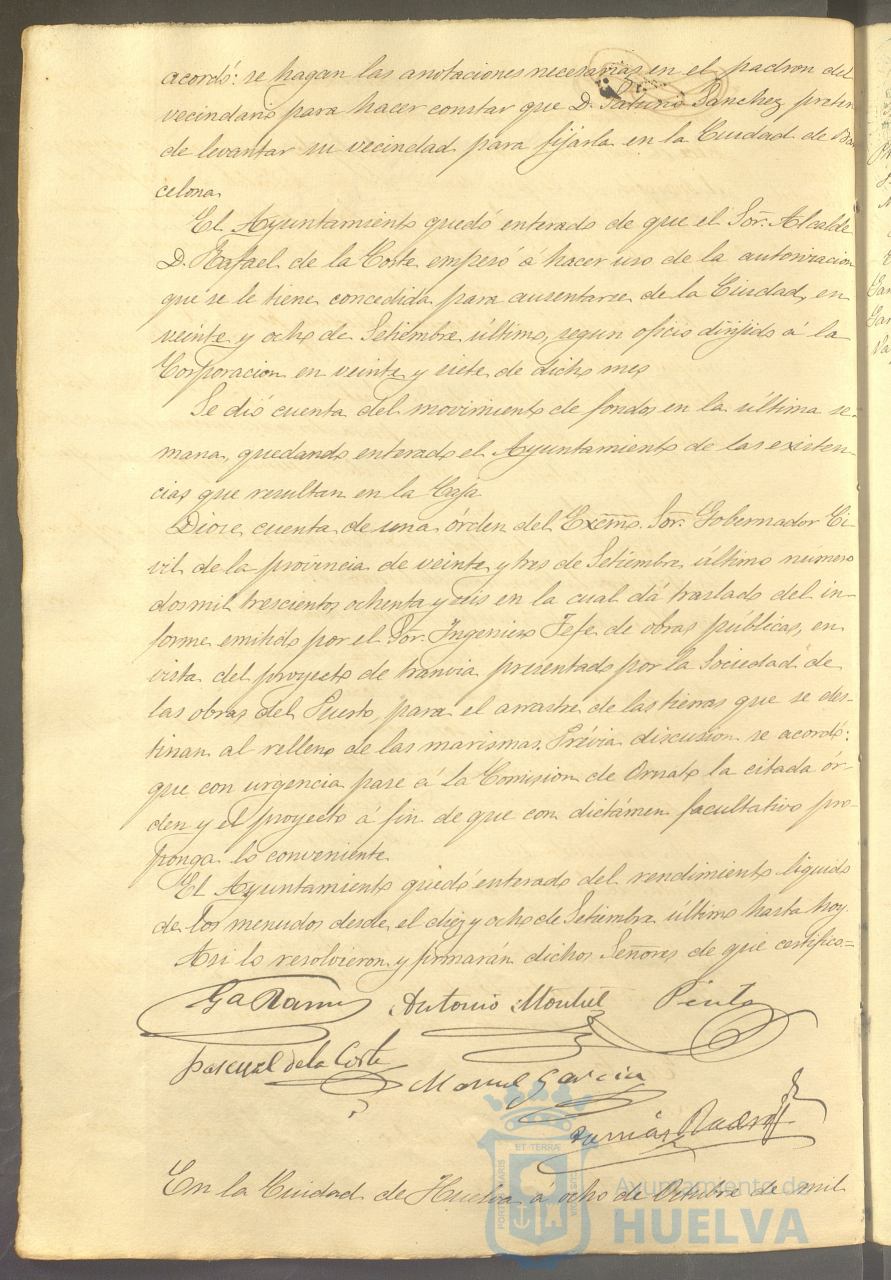 acordó: se hagan las anotaciones necesarias en el padron del
vecindario para hacer constar que D. Saturio Sanchez preten
de levantar su vecindad para fijarla en la Ciudad de Bar
celona.
El Ayuntamiento quedó enterado de que el Sor. Alcalde
D. Rafael de la Corte empesó á hacer uso de la autorizacion
que se le tiene concedida para ausentarse de la Ciudad, en
veinte y ocho de Setiembre último, segun oficio dirijido á la
Corporacion en veinte y siete de dicho mes
Se dió cuenta del movimiento de fondos en la última se-
mana, quedando enterado el Ayuntamiento de las existen-
cias que resultan en la Caja
Diose cuenta de una órden del Excmo. Sor. Gobernador Ci-
vil de la provincia de veinte y tres de Setiembre último número
dos mil trescientos ochenta y seis en la cual dá traslado del in-
forme emitido por el Sor. Ingeniero Jefe de obras públicas, en
vista del proyecto de tranvia presentado por la Sociedad de
las obras del Puerto, para el arrastre de las tierras que se des-
tinan al relleno de las marismas. Prévia discusion se acordó:
que con urgencia pase á la Comision de Ornato la citada ór-
den y el proyecto á fin de que con dictámen facultativo pro-
ponga lo conveniente
El Ayuntamiento quedó enterado del rendimiento liquido
de los menudos desde el diez y ocho de Setiembre último hasta hoy.
Asi lo resolvieron y firmarán dichos Señores de que certifico.=
Antonio Montiel
Pascual de la Corte
Manuel Garcia
En la Ciudad de Huelva á ocho de Octubre de mil
Ayuntamiento de
HUELVA